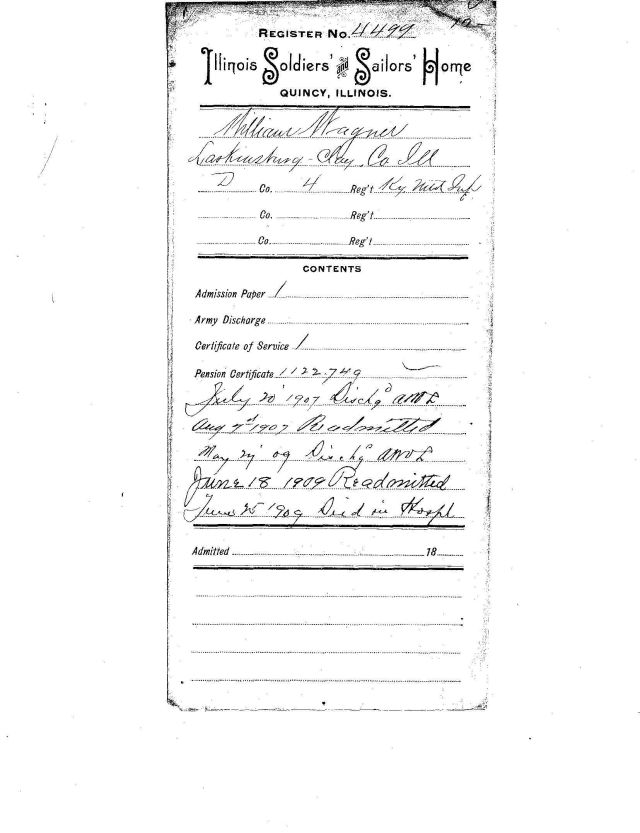 REGISTER No. 4499
Illinois Soldiers' and Sailors' Home
QUINCY, ILLINOIS.
William Wagner
Larkinsburg - Clay. Co Ill
D Co. 4 Reg't Ky Mtd Inf
Co. Reg't
Co. Reg't
CONTENTS
Admission Paper 1
Army Discharge
Certificate of Service 1
Pension Certificate 1122.749
July 20 1907 Dischgd AWOL
Aug 7th 1907 Readmitted
May 09 Dischgd AWOL
June 18 1909 Readmitted
June 25 1909 Died in Hospl
Admitted 18